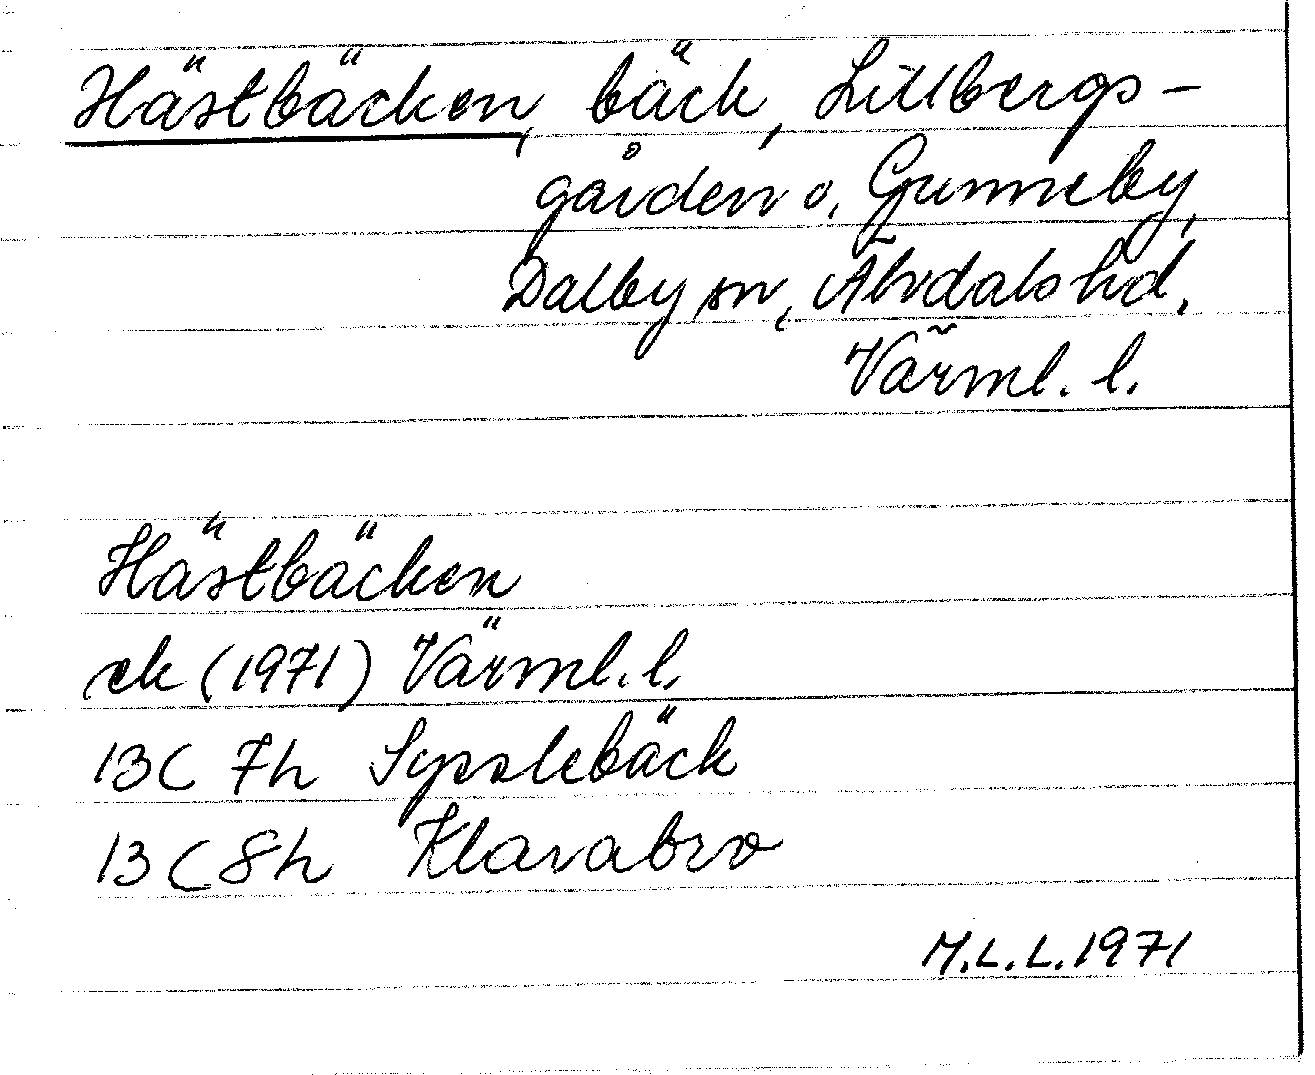 Hästbäcken, bäck, Lillbergs-
gården o. Gunneby,
Dalby sn, Älvdals hd,
Värml. l.
Hästbäcken
ek (1971) Värml. l.
13C 7h Sysslebäck
13C 8h Klarabro
M.L.L. 1971